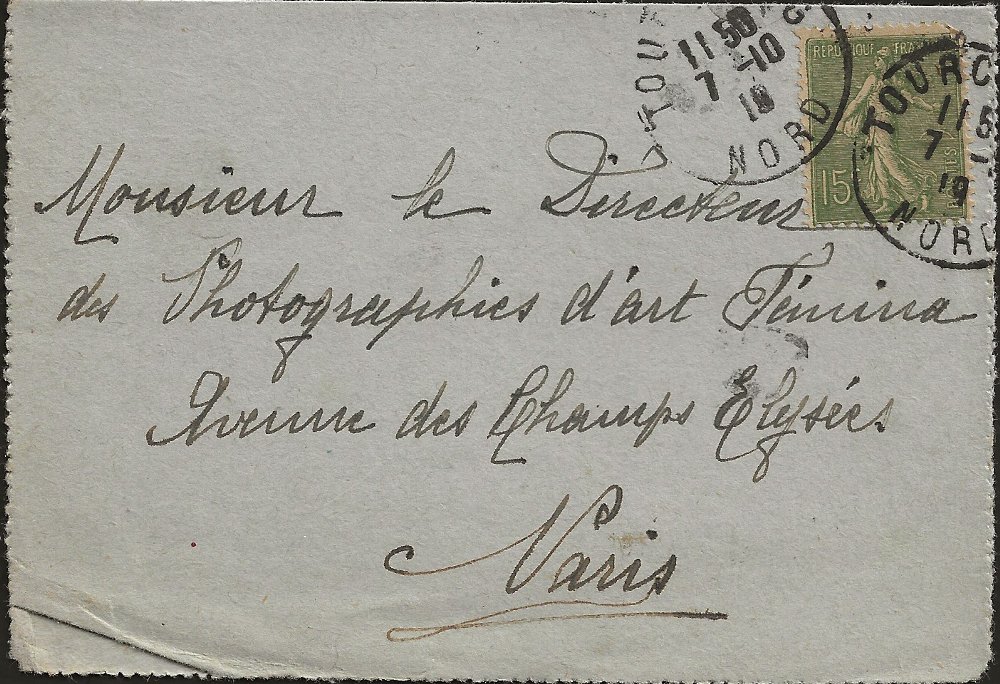 TOURCOING
11 50
7 -10
19
NORD
REPUBLIQUE FRANÇAISE
15
TOURC
11 5
7
19
NORD
Monsieur le Directeur
des Photographies d'art Fémina
Avenue des Champs Elysées
Paris